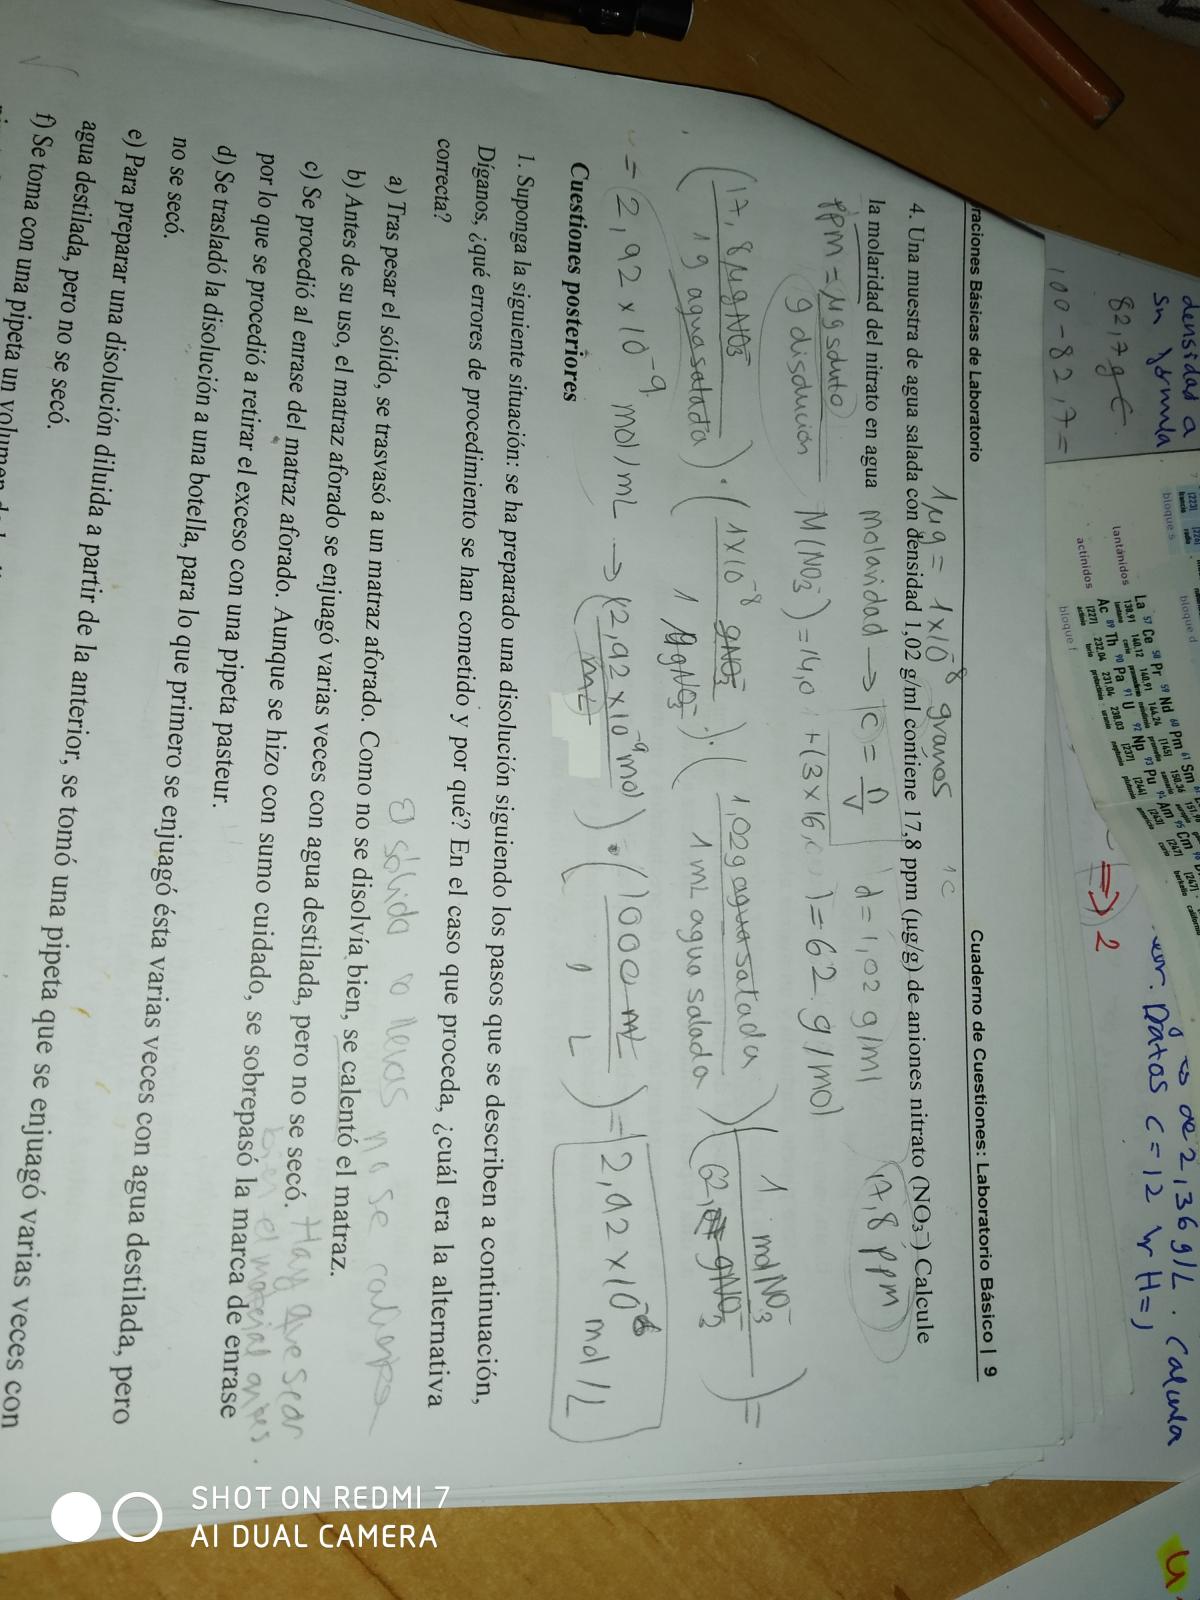 densidad a
su formula
82,7 g C
100 - 82,7 =
de 2,36 g/L. Calcula
Datos C = 12 y H = 1
⇒ 2
bloque s
bloque d
lantánidos
actinidos
bloque f
raciones Básicas de Laboratorio
Cuaderno de Cuestiones: Laboratorio Básico | 9
1 µg = 1x10⁻⁸ gramos
4. Una muestra de agua salada con densidad 1,02 g/ml contiene 17,8 ppm (µg/g) de aniones nitrato (NO₃⁻) Calcule
la molaridad del nitrato en agua molaridad → C = n/V d = 1,02 g/ml 17,8 ppm
ppm = µg soluto / g disolución M(NO₃⁻) = 14,0 + (3 x 16,0) = 62 g/mol
(17,8 µg NO₃⁻ / 1 g agua salada) · (1x10⁻⁸ g NO₃⁻ / 1 µg NO₃⁻) · (1,02 g agua salada / 1 mL agua salada) (1 mol NO₃⁻ / 62, g NO₃⁻) =
= 2,92 x 10⁻⁹ mol/mL → (2,92 x 10⁻⁹ mol / mL) · (1000 mL / 1 L) = 2,92 x 10⁻⁶ mol/L
Cuestiones posteriores
1. Suponga la siguiente situación: se ha preparado una disolución siguiendo los pasos que se describen a continuación,
Díganos, ¿qué errores de procedimiento se han cometido y por qué? En el caso que proceda, ¿cuál era la alternativa
correcta?
El sólido o llevas no se calienta
a) Tras pesar el sólido, se trasvasó a un matraz aforado. Como no se disolvía bien, se calentó el matraz.
b) Antes de su uso, el matraz aforado se enjuagó varias veces con agua destilada, pero no se secó. Hay que secar
bien el material antes.
c) Se procedió al enrase del matraz aforado. Aunque se hizo con sumo cuidado, se sobrepasó la marca de enrase
por lo que se procedió a retirar el exceso con una pipeta pasteur.
d) Se trasladó la disolución a una botella, para lo que primero se enjuagó ésta varias veces con agua destilada, pero
no se secó.
e) Para preparar una disolución diluida a partir de la anterior, se tomó una pipeta que se enjuagó varias veces con
agua destilada, pero no se secó.
f) Se toma con una pipeta un volumen
SHOT ON REDMI 7
AI DUAL CAMERA